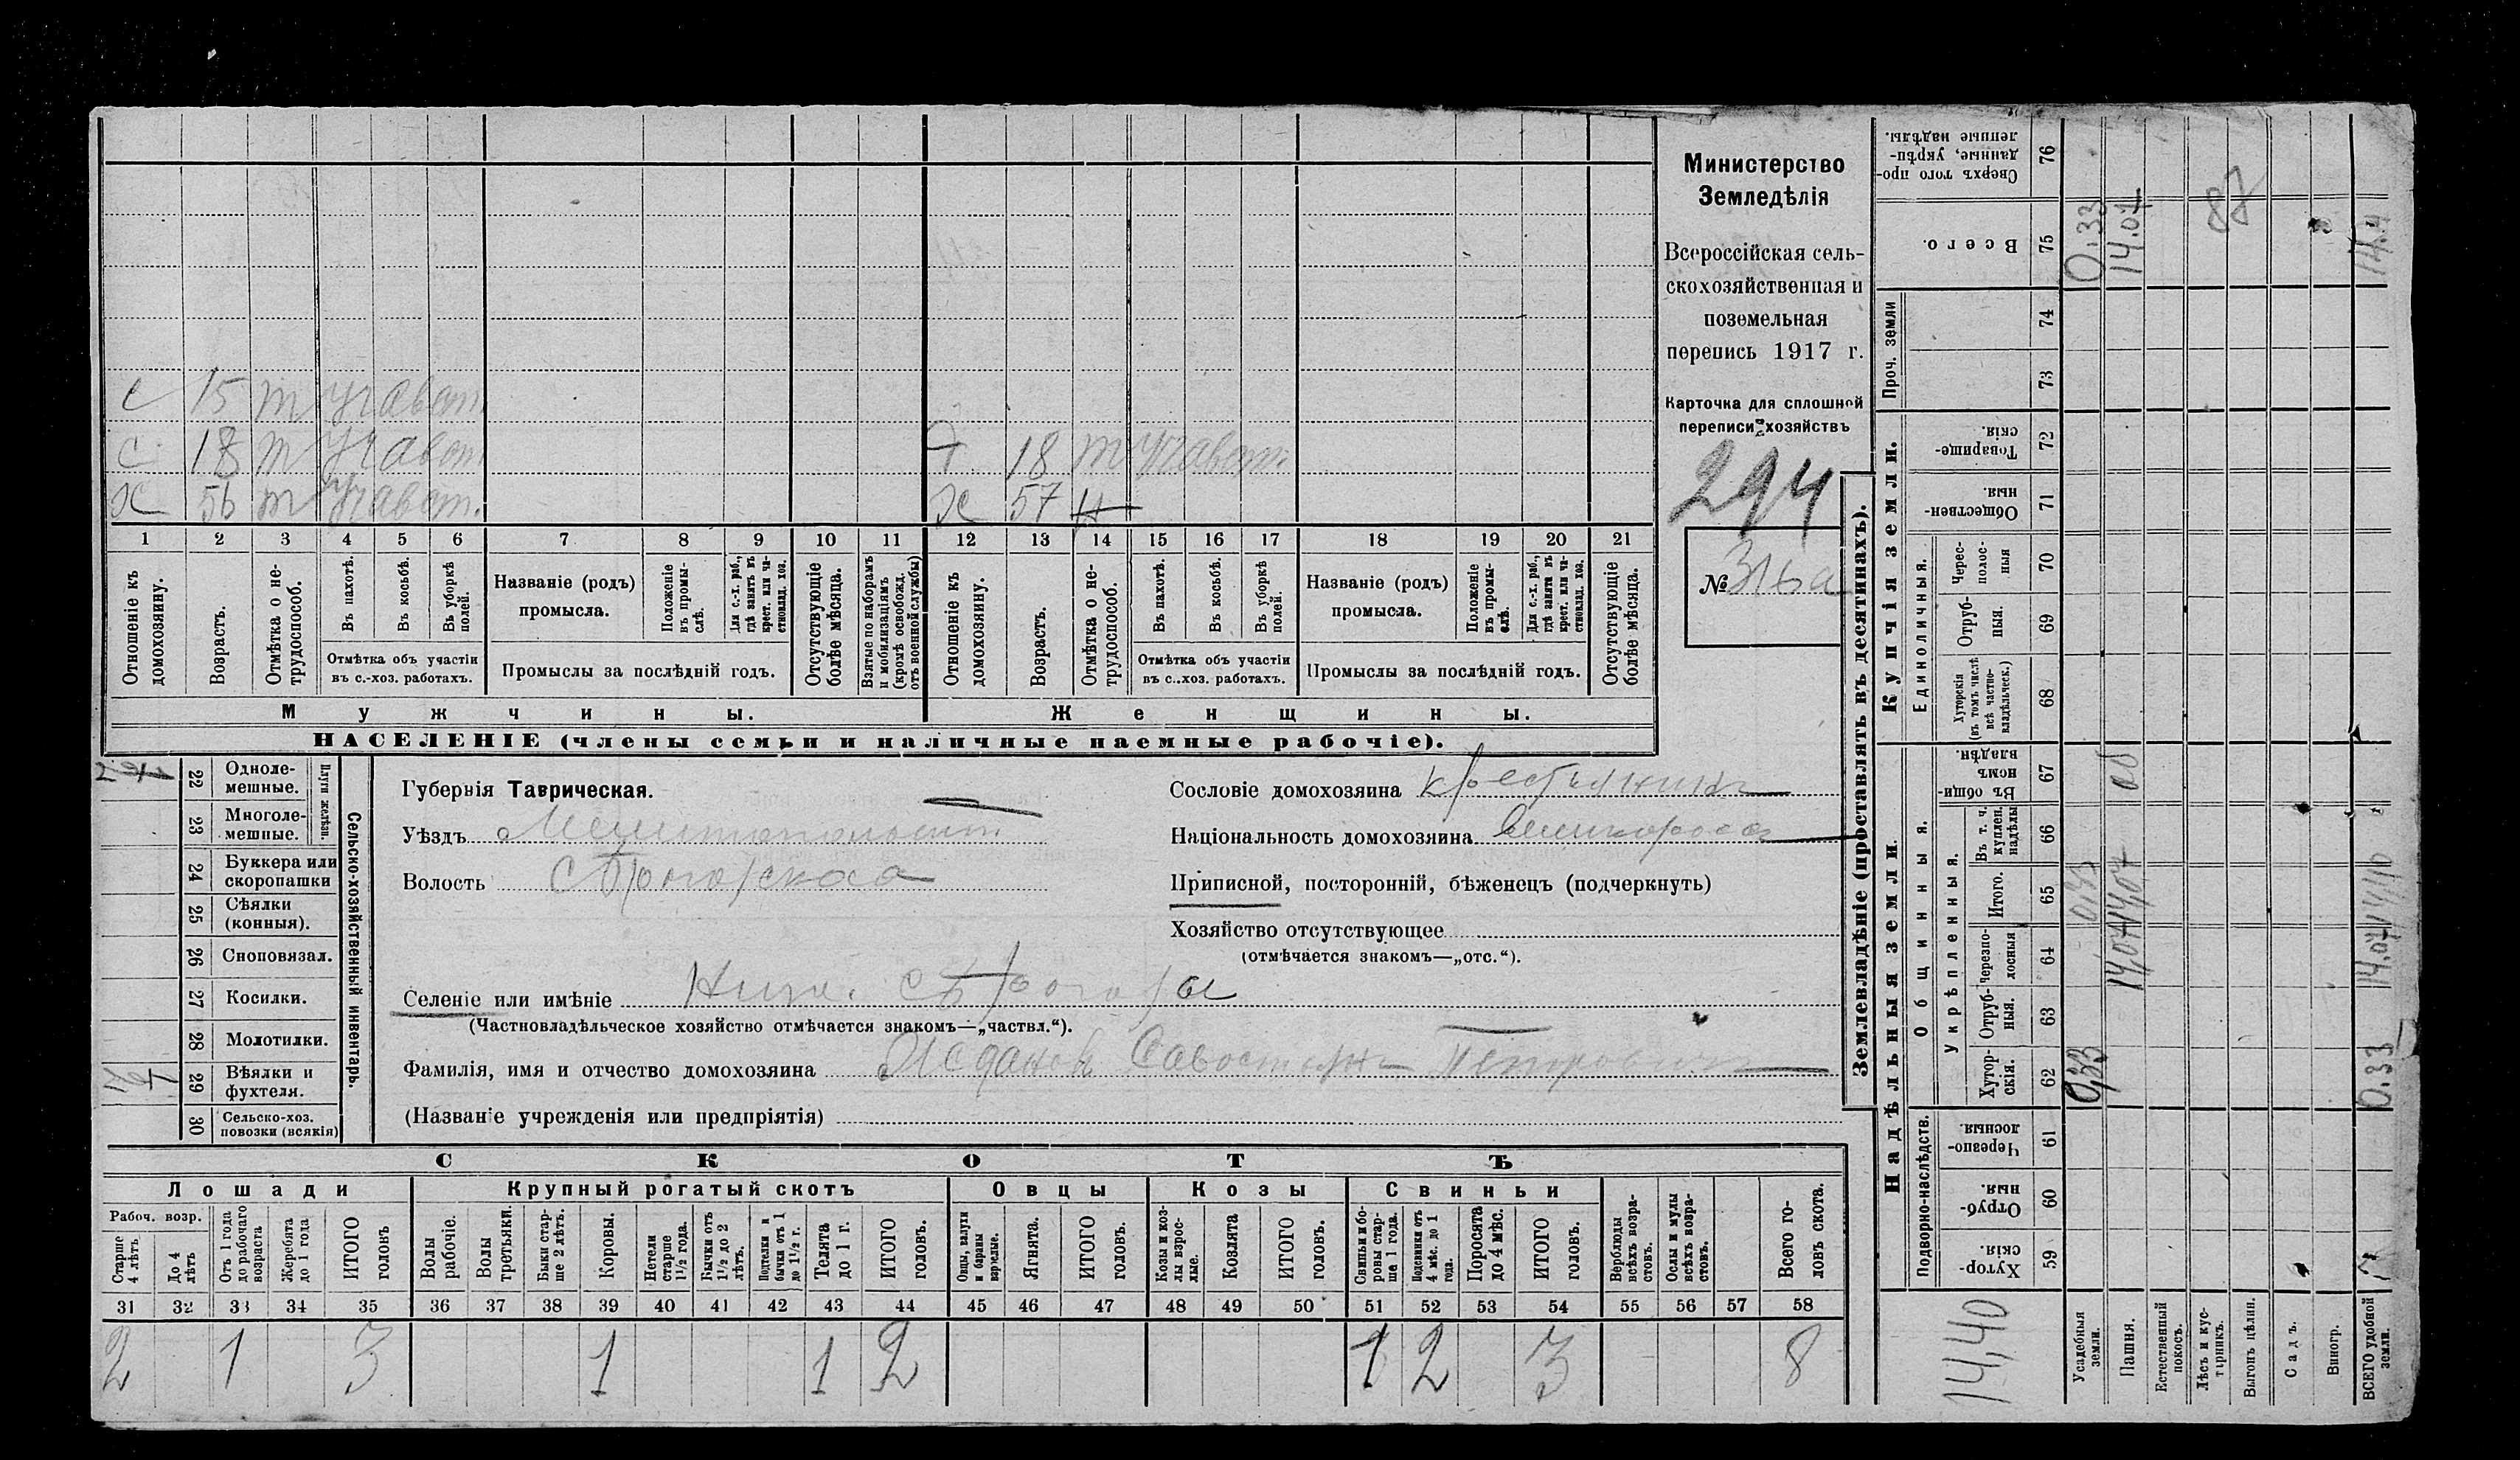 Министерство
Земледѣлія
Всероссійская сель-
скохозяйственная и
поземельная
перепись 1917 г.
Карточка для сплошной
переписи хозяйствъ
294
№ 316а
с 15 т
с 18 т
х 56 т
18 т
х 57 н
1 2 3 4 5 6 7 8 9 10 11 12 13 14 15 16 17 18 19 20 21
Отношеніе къ домохозяину.
Возрастъ.
Отмѣтка о не-трудоспособ.
Въ пахотѣ.
Въ косьбѣ.
Въ уборкѣ полей.
Отмѣтка объ участіи
въ с.-хоз. работахъ.
Названіе (родъ)
промысла.
Положеніе въ промы-слѣ.
Для с.-х. раб., гдѣ занятъ въ крест. или ча-стновлад. хоз.
Промыслы за послѣдній годъ.
Отсутствующіе болѣе мѣсяца.
Взятые по наборамъ и мобилизаціямъ (кромѣ освобожд. отъ военной службы)
Отношеніе къ домохозяину.
Возрастъ.
Отмѣтка о не-трудоспособ.
Въ пахотѣ.
Въ косьбѣ.
Въ уборкѣ полей.
Отмѣтка объ участіи
въ с.-хоз. работахъ.
Названіе (родъ)
промысла.
Положеніе въ промы-слѣ.
Для с.-х. раб., гдѣ занята въ крест. или ча-стновлад. хоз.
Промыслы за послѣдній годъ.
Отсутствующіе болѣе мѣсяца.
Мужчины.
Женщины.
НАСЕЛЕНІЕ (члены семьи и наличные наемные рабочіе).
Сельско-хозяйственный инвентарь.
Плуги желѣзн.
22 Одноле-мешные.
23 Многоле-мешные.
24 Буккера или скоропашки
25 Сѣялки (конныя).
26 Сноповязал.
27 Косилки.
28 Молотилки.
29 Вѣялки и фухтеля.
30 Сельско-хоз. повозки (всякія)
Губернія Таврическая.
Уѣздъ Мелитопольскій
Волость
Селеніе или имѣніе
(Частновладѣльческое хозяйство отмѣчается знакомъ—„частвл.“).
Фамилія, имя и отчество домохозяина
(Названіе учрежденія или предпріятія)
Сословіе домохозяина крестьянинъ
Національность домохозяина великороссъ
Приписной, посторонній, бѣженецъ (подчеркнуть)
Хозяйство отсутствующее
(отмѣчается знакомъ—„отс.“).
СКОТЪ
Лошади
Крупный рогатый скотъ
Овцы
Козы
Свиньи
Рабоч. возр.
Старше 4 лѣтъ
До 4 лѣтъ
Отъ 1 года до рабочаго возраста
Жеребята до 1 года
ИТОГО головъ
Волы рабочіе.
Волы третьяки.
Быки стар-ше 2 лѣтъ.
Коровы.
Нетели старше 1 1/2 года.
Бычки отъ 1 1/2 до 2 лѣтъ.
Подтелки и бычки отъ 1 до 1 1/2 г.
Телята до 1 г.
ИТОГО головъ.
Овцы, валухи и бараны взрослые.
Ягнята.
ИТОГО головъ.
Козы и коз-лы взрос-лые.
Козлята
ИТОГО головъ.
Свиньи и бо-ровы стар-ше 1 года.
Подсвинки отъ 4 мѣс. до 1 года.
Поросята до 4 мѣс.
ИТОГО головъ.
Верблюды всѣхъ возра-стовъ.
Ослы и мулы всѣхъ возра-стовъ.
Всего го-ловъ скота.
31 32 33 34 35 36 37 38 39 40 41 42 43 44 45 46 47 48 49 50 51 52 53 54 55 56 57 58
2 1 3 1 1 2 1 2 3 8
Землевладѣніе (проставлять въ десятинахъ).
Надѣльныя земли.
Купчія земли.
Проч. земли
Подворно-наслѣдств.
Общинныя.
Укрѣпленныя.
Единоличныя.
59 Хутор-скія.
60 Отруб-ныя.
61 Черезпо-лосныя.
62 Хутор-скія.
63 Отруб-ныя.
64 Черезпо-лосныя
65 Итого.
66 Въ т. ч. куплен. надѣлы
67 Въ общи-номъ владѣн.
68 Хуторскія (въ томъ числѣ всѣ частно-владѣльческ.)
69 Отруб-ныя.
70 Черес-полос-ныя
71 Обществен-ныя.
72 Товарище-скія.
73
74
75 Всего.
76 Сверхъ того про-данные, укрѣп-ленные надѣлы.
14,40
Усадебныя земли.
0,33
0,33
0.33
Пашня.
14,07
14,07
14.07
Естественный покосъ.
Лѣсъ и кус-тарникъ.
87
Выгонъ цѣлин.
Садъ.
Виногр.
ВСЕГО удобной земли.
0.33
14.07